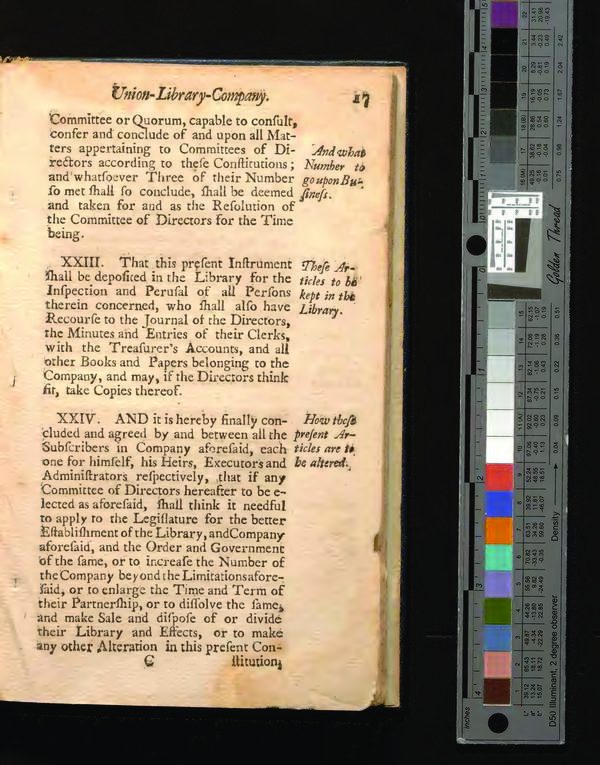 Union-Library-Company.
17
Committee or Quorum, capable to conſult,
confer and conclude of and upon all Mat-
ters appertaining to Committees of Di-
rectors according to theſe Conſtitutions;
and whatſoever Three of their Number
ſo met ſhall ſo conclude, ſhall be deemed
and taken for and as the Reſolution of
the Committee of Directors for the Time
being.
And what
Number to
go upon Bu-
ſineſs.
XXIII. That this preſent Inſtrument
ſhall be depoſited in the Library for the
Inſpection and Peruſal of all Perſons
therein concerned, who ſhall alſo have
Recourſe to the Journal of the Directors,
the Minutes and Entries of their Clerks,
with the Treaſurer's Accounts, and all
other Books and Papers belonging to the
Company, and may, if the Directors think
fit, take Copies thereof.
Theſe Ar-
ticles to be
kept in the
Library.
XXIV. AND it is hereby finally con-
cluded and agreed by and between all the
Subſcribers in Company aforeſaid, each
one for himſelf, his Heirs, Executors and
Adminiſtrators reſpectively, that if any
Committee of Directors hereafter to be e-
lected as aforeſaid, ſhall think it needful
to apply to the Legiſlature for the better
Eſtabliſhment of the Library, and Company
aforeſaid, and the Order and Government
of the ſame, or to increaſe the Number of
the Company beyond the Limitations afore-
ſaid, or to enlarge the Time and Term of
their Partnerſhip, or to diſſolve the ſame,
and make Sale and diſpoſe of or divide
their Library and Effects, or to make
any other Alteration in this preſent Con-
C ſtitution,
How theſe
preſent Ar-
ticles are to
be altered.
Golden Thread
D50 Illuminant, 2 degree observer
Density
inches